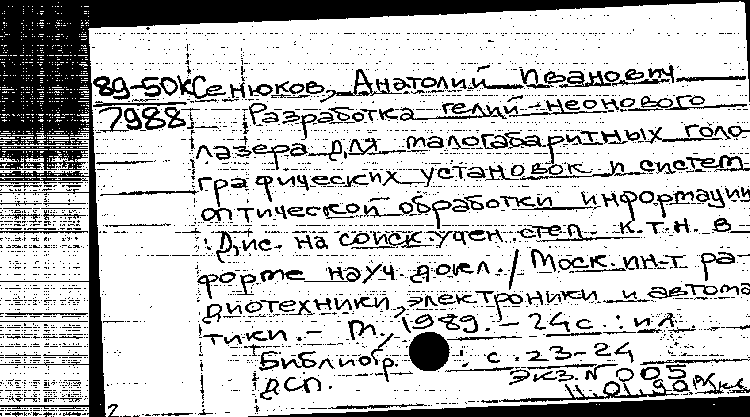 89-50К Сенюков, Анатолий Иванович
7988 Разработка гелий-неонового
лазера для малогабаритных голо-
графических установок и систем
оптической обработки информации
: Дис. на соиск. учен. степ. к.т.н. в
форме науч. докл. / Моск. ин-т ра-
диотехники, электроники и автома
тики. - М., 1989. - 24 с. : ил
Библиогр. : с. 23-24
ДСП. Экз. N 005
11.01.90
2